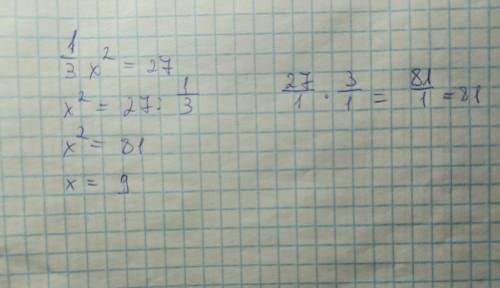 1/3 x² = 27
x² = 27 : 1/3
x² = 81
x = 9
27/1 · 3/1 = 81/1 = 81